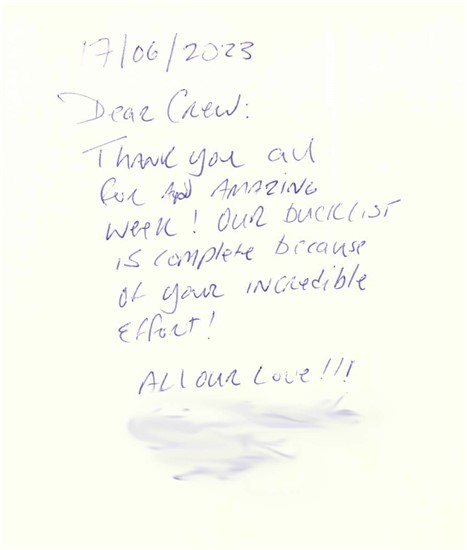 17/06/2023
Dear Crew:
Thank you all
for AMAZING
week! Our bucklist
is complete because
of your incredible
effort!
All our Love!!!